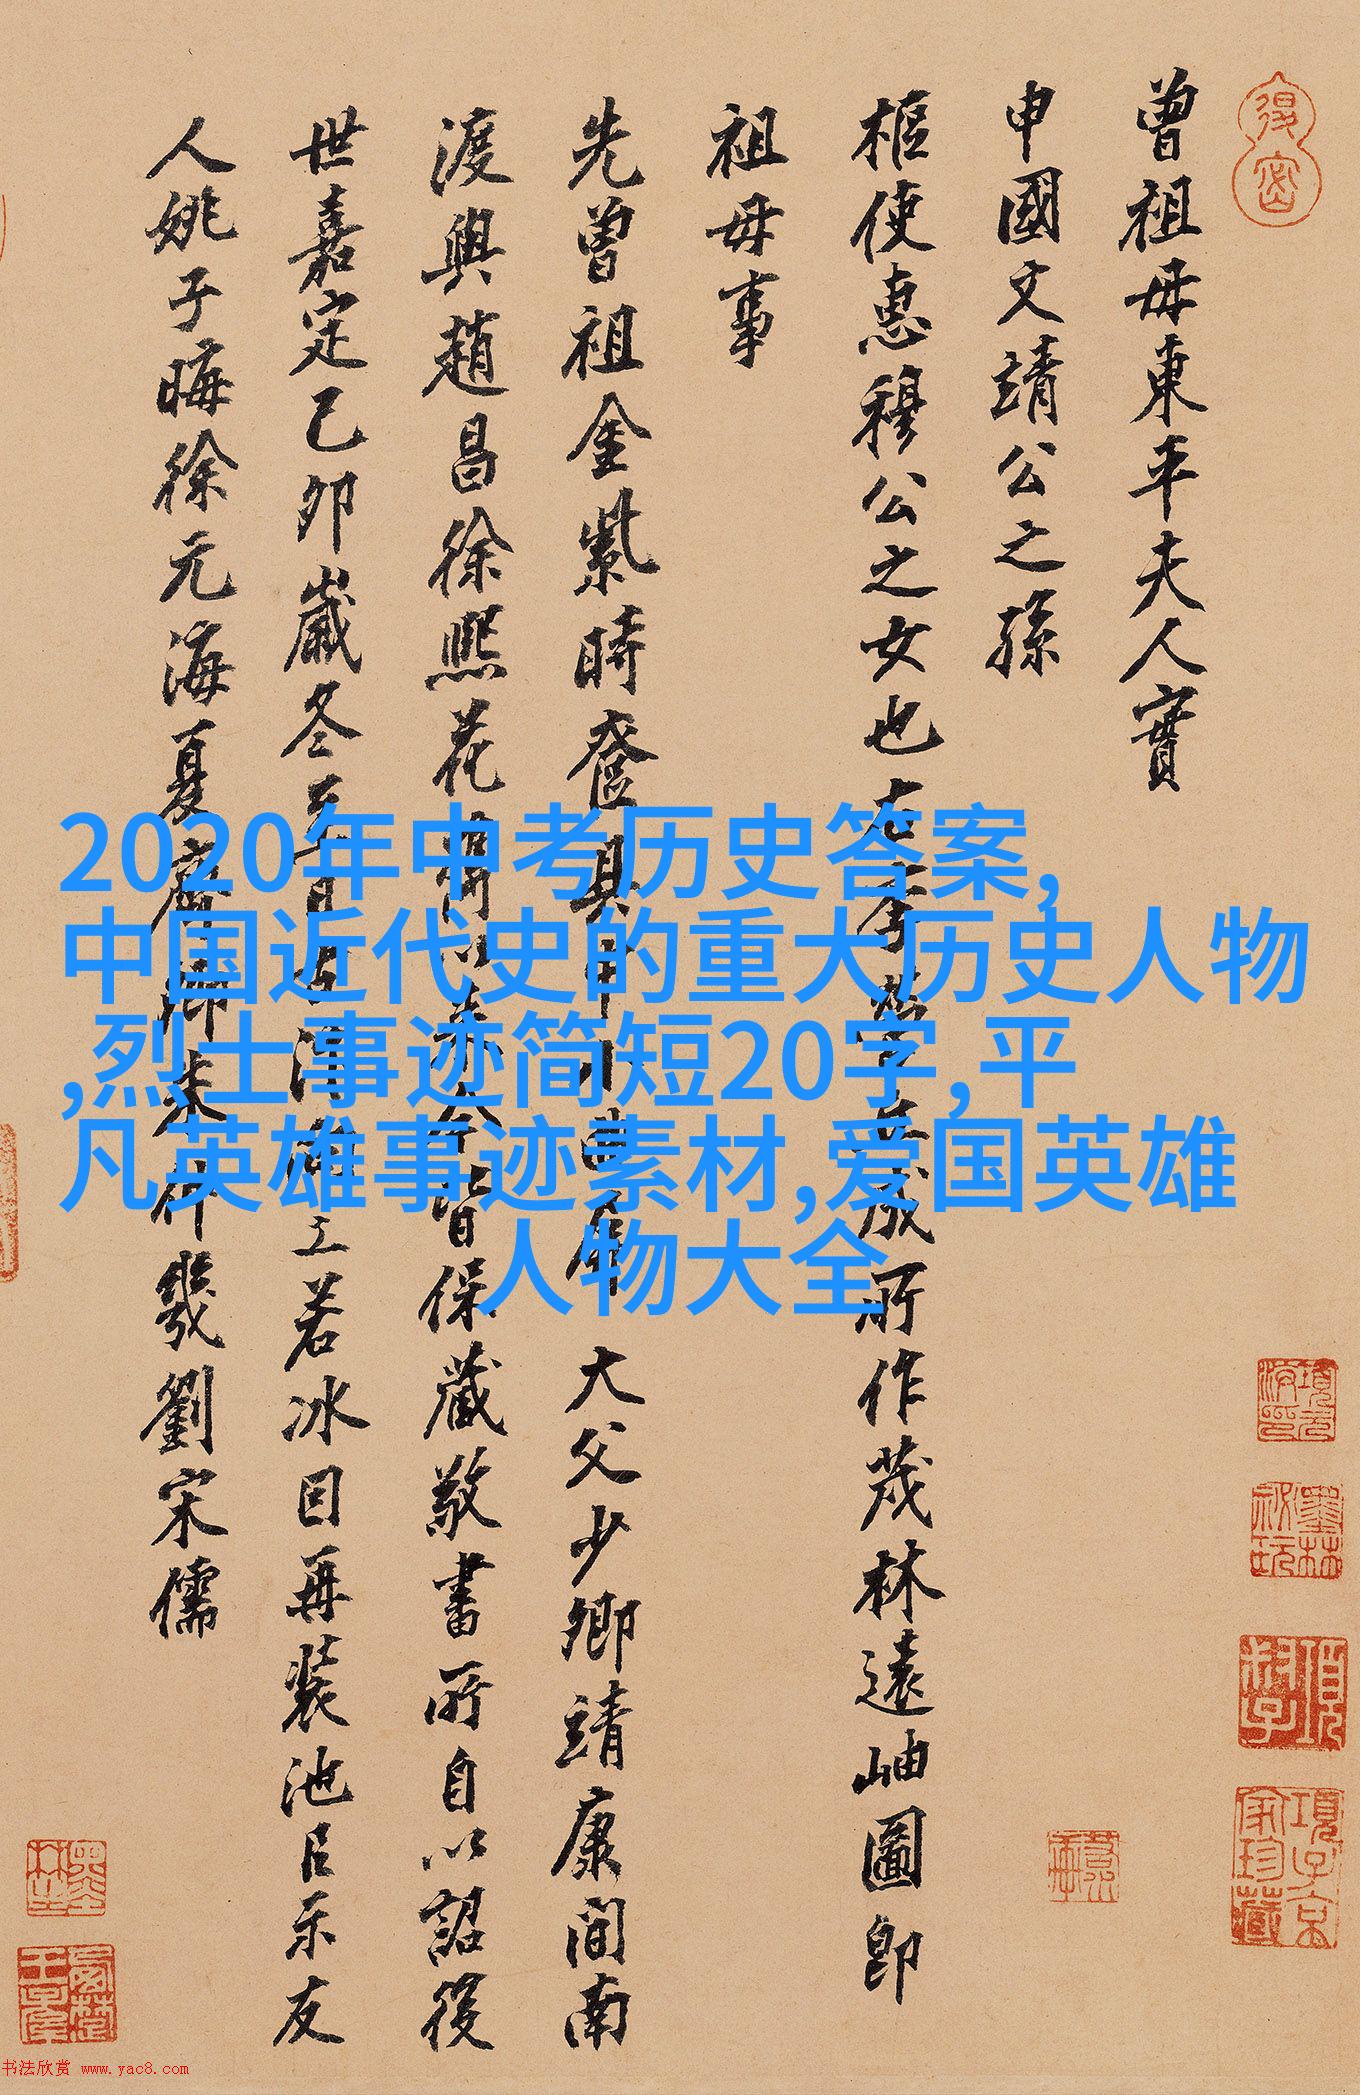 曾祖母東平夫人寶
申國文靖公之孫
樞使惠穆公之女也右李營丘咸所作茂林遠岫圖即
祖母事
先曾祖金紫時奩具中小曲屏 大父少卿靖康間南
渡與趙昌徐熙花
皆保藏敬書所自以詔後
世嘉定己卯歲冬至
工若冰因再裝池臣示友
人姚子晦徐元海夏
幾劉宋儒
2020年中考历史答案,
中国近代史的重大历史人物
,烈士事迹简短20字,平
凡英雄事迹素材,爱国英雄
人物大全
书法欣赏 www.yac8.com